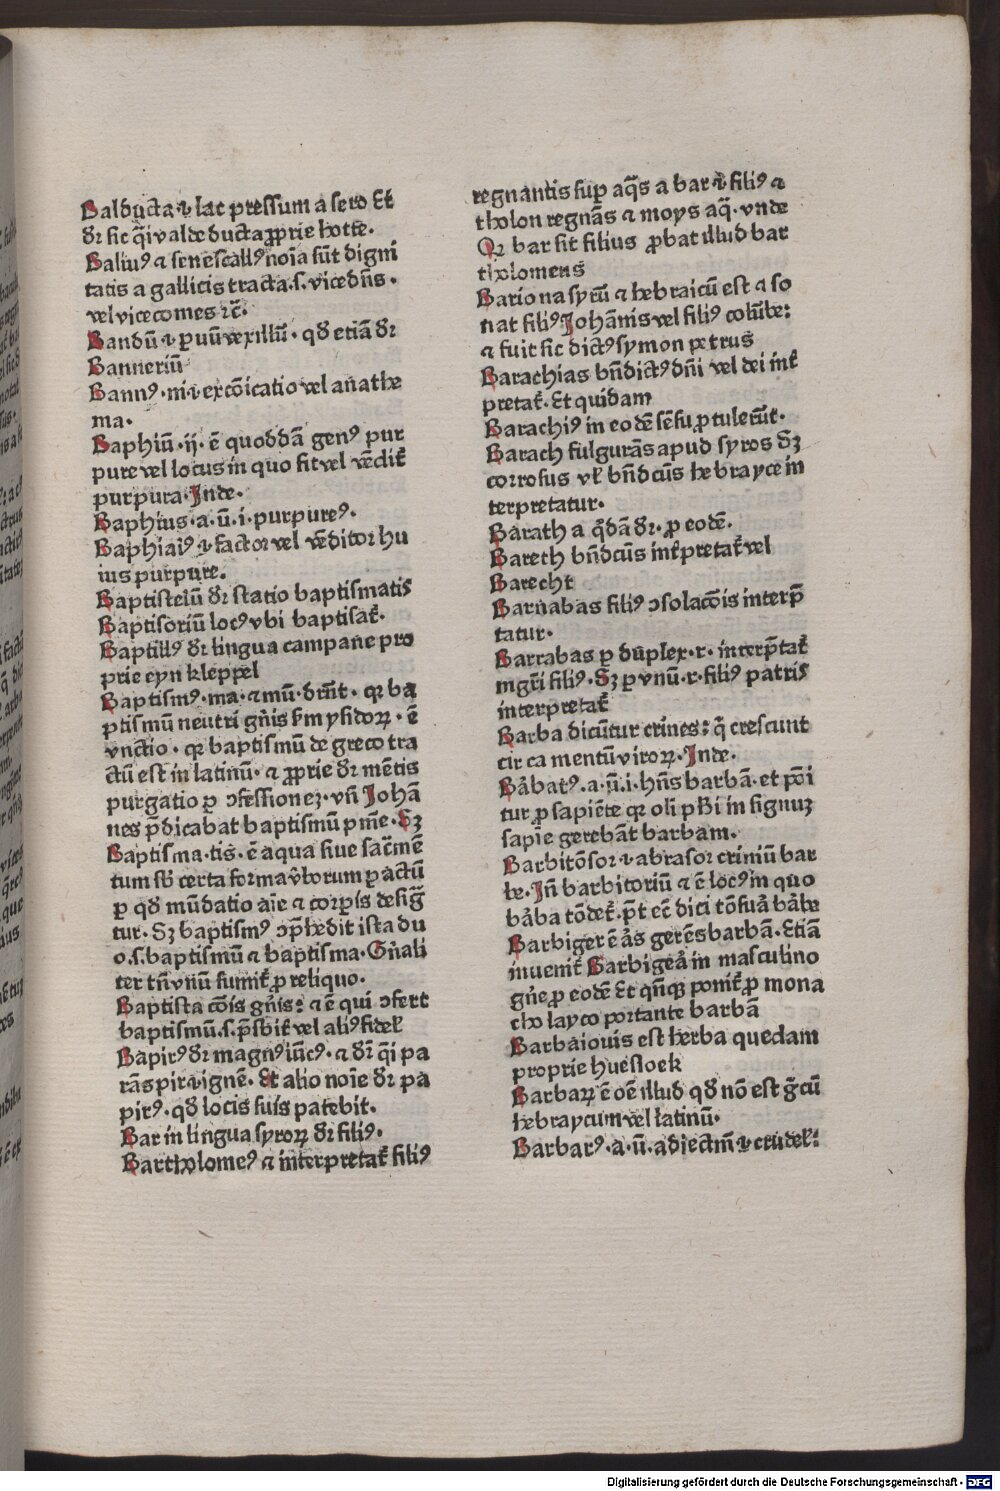 Balducta ⁊ lac pressum a sero Et
dr̄ sic q̄i valde ducta ꝓprie hotte.
Baliuꝰ ⁊ senescallꝰ noīa sūt digni
tatis a gallicis tracta.s. vicedn̄s.
vel vicecomes ⁊c̄.
Bandū .i. ꝑuū vexillū. qd̄ etiā dr̄
Banneriū
Bannꝰ .ni.i. excōicatio vel anathe
ma.
Baphiū .ij. ē quoddā genꝰ pur
pure vel locus in quo fit vel vēdit᷑
purpura. Inde.
Baphius .a.ū.i. purpureꝰ.
Baphiaiꝰ .i. factor vel vēditor hu
ius purpure.
Baptisteiū dr̄ statio baptismatis
Baptisoriū locꝰ vbi baptisat᷑.
Baptillꝰ dr̄ lingua campane pro
prie eyn kleppel
Baptismꝰ .ma. ⁊ mū. drn̄t. qꝛ ba
ptismū neutri gn̄is s̄m ysidoꝝ. ē
vnctio. qꝛ baptismū de greco tra
ctū est in latinū. ⁊ ꝓprie dr̄ mētis
purgatio ꝑ ɔfessionez. vn̄ Johā
nes p̄dicabat baptismū pn̄ie. Sꝫ
Baptisma .tis. ē aqua siue sac̄mē
tum sb̄ certa forma v̄borum ꝑ actū
ꝑ qd̄ mūdatio aīe ⁊ corꝑis desig̅
tur. Sꝫ baptismꝰ ɔp̄hēdit ista du
o.s. baptismū ⁊ baptisma. Gn̄ali
ter tn̄ vnū sumit᷑ ꝓ reliquo.
Baptista cōis gn̄is: ⁊ ē qui ɔfert
baptismū.s. p̄sbit᷑ vel aliꝰ fidel̕
Bapirꝰ dr̄ magnꝰ iūcꝰ. ⁊ dr̄ q̄i pa
rās pir .i. ignē. Et alio noīe dr̄ pa
pirꝰ. qd̄ locis suis patebit.
Bar in lingua syroꝝ dr̄ filiꝰ.
Bartholomeꝰ ⁊ interpretat᷑ filiꝰ
regnantis suꝑ aq̄s a bar .i. filiꝰ ⁊
tholon regnās ⁊ moys aq̄. vnde
Qꝛ bar sit filius ꝓbat illud bar
tholomeus
Bariona syrū ⁊ hebraicū est ⁊ so
nat filiꝰ Johānis vel filiꝰ colūbe:
⁊ fuit sic dictꝰ symon petrus
Barachias bn̄dictꝰ dn̄i vel dei int᷑
pretat᷑. Et quidam
Barachiꝰ in eodē sēsu ꝓtulerūt.
Barach fulgurās apud syros Sꝫ
corrosus vl̕ bn̄dcūs hebrayce in
terpretatur.
Baratha q̄dā dr̄. ꝓ eodē.
Barech bn̄dcūs int᷑pretat᷑ vel
Barecht
Barnabas filiꝰ ɔsolacōis interp̄
tatur.
Barrabas ꝑ duplex .r. interp̄tat᷑
mgr̄i filiꝰ. Sꝫ ꝑ vnū .r. filiꝰ patris
interpretat᷑
Barba dicūtur crines: q̄ crescunt
circa mentū viroꝝ. Inde.
Bābatꝰ .a.ū.i. hn̄s barbā. et pōi
tur ꝓ sapiēte qꝛ oli phī in signuꝫ
sapīe gerebāt barbam.
Barbitōsor .i. abrasor criniū bar
be. Jn̄ barbitoriū ⁊ ē locꝰ in quo
bāba tōdet᷑. p̄t ec̄ dici tōsua̕ ba̕be
Barbiger ē a̕s gerēs barbā. Etiā
inuenit᷑ Barbigea̕ in masculino
gn̄e ꝓ eodē Et qn̄qꝫ ponit᷑ ꝓ mona
cho layco portante barbā
Barbaiouis est herba quedam
proprie huesloek
Barbaꝝ ē oē illud qd̄ nō est g̅cū
hebraycum vel latinū.
Barbarꝰ .a.ū. adiectm̄ .i. crudel̕:
Digitalisierung gefördert durch die Deutsche Forschungsgemeinschaft - DFG